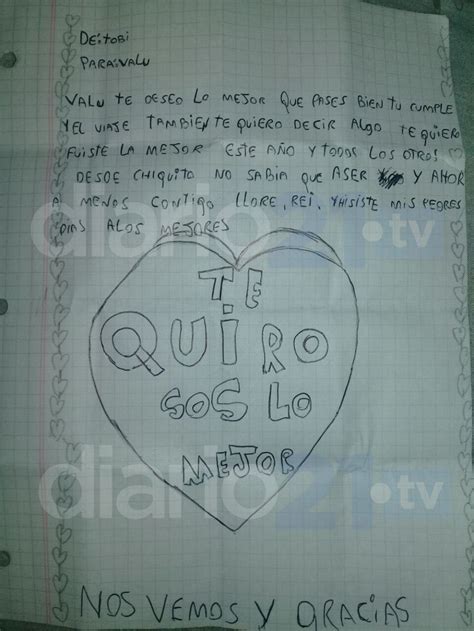 DE:TOBI
PARA:VALU
VALU TE DESEO LO MEJOR QUE PASES BIEN TU CUMPLE
Y EL VIAJE TAMBIEN TE QUIERO DECIR ALGO TE QUIERO
FUISTE LA MEJOR ESTE AÑO Y TODOS LOS OTROS
DESDE CHIQUITO NO SABIA QUE ASER Y AHOR
A MENOS CONTIGO LLORE, REI, YHISISTE MIS PEORES
DIAS ALOS MEJORES
diario21.tv
TE
QUIRO
SOS LO
MEJOR
diario21.tv
NOS VEMOS Y GRACIAS